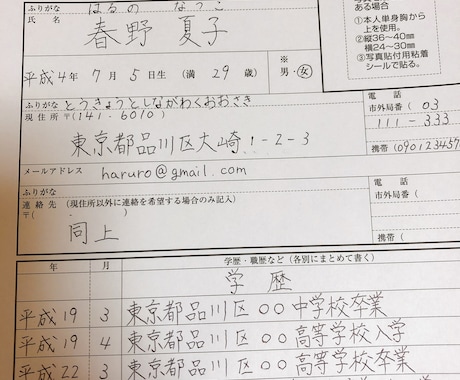 ふりがな はるの なつこ
氏名 春野 夏子
平成4年 7月 5日生(満 29 歳) ※ 男・女
ある場合
①本人単身胸から
上を使用。
②縦36〜40㎜
横24〜30㎜
③写真貼付用粘着
シールで貼る。
ふりがな とうきょうとしながわくおおさき
現住所 〒(141.6010)
東京都品川区大崎1-2-3
電話
市外局番( 03
111-333
携帯(090123457
メールアドレス haruro@gmail.com
ふりがな
連絡先(現住所以外に連絡を希望する場合のみ記入)
〒( )
同上
電話
市外局番(
携帯(
年 月 学歴・職歴など(各別にまとめて書く)
学歴
平成19 3 東京都品川区○○中学校卒業
平成19 4 東京都品川区○○高等学校入学
平成22 3 東京都品川区○○高等学校卒業